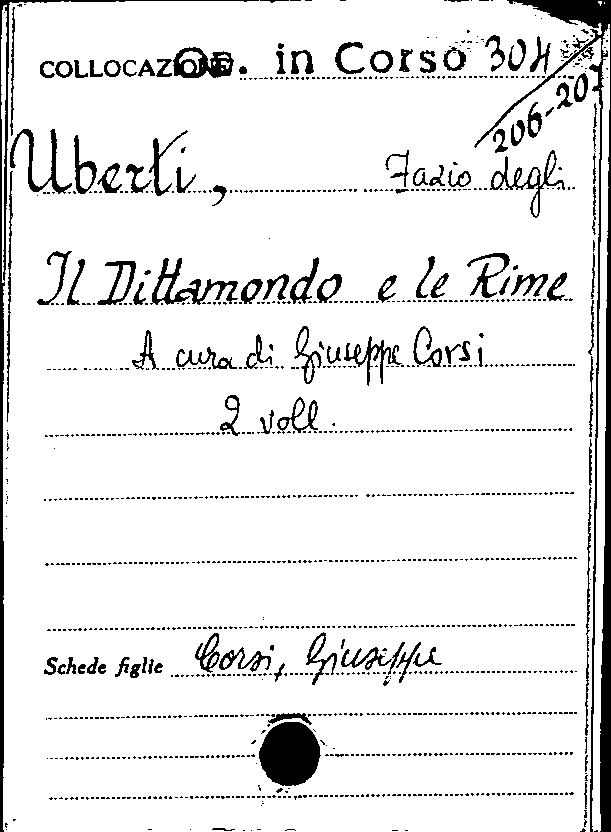 COLLOCAZIONE Op. in Corso 304
206-207
Uberti, Fazio degli
Il Dittamondo e le Rime
A cura di Giuseppe Corsi
2 voll.
Schede figlie Corsi, Giuseppe